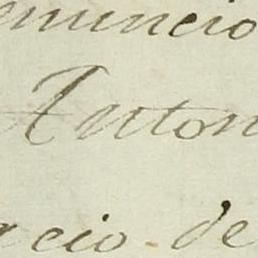 enuncio
Anton
cio de